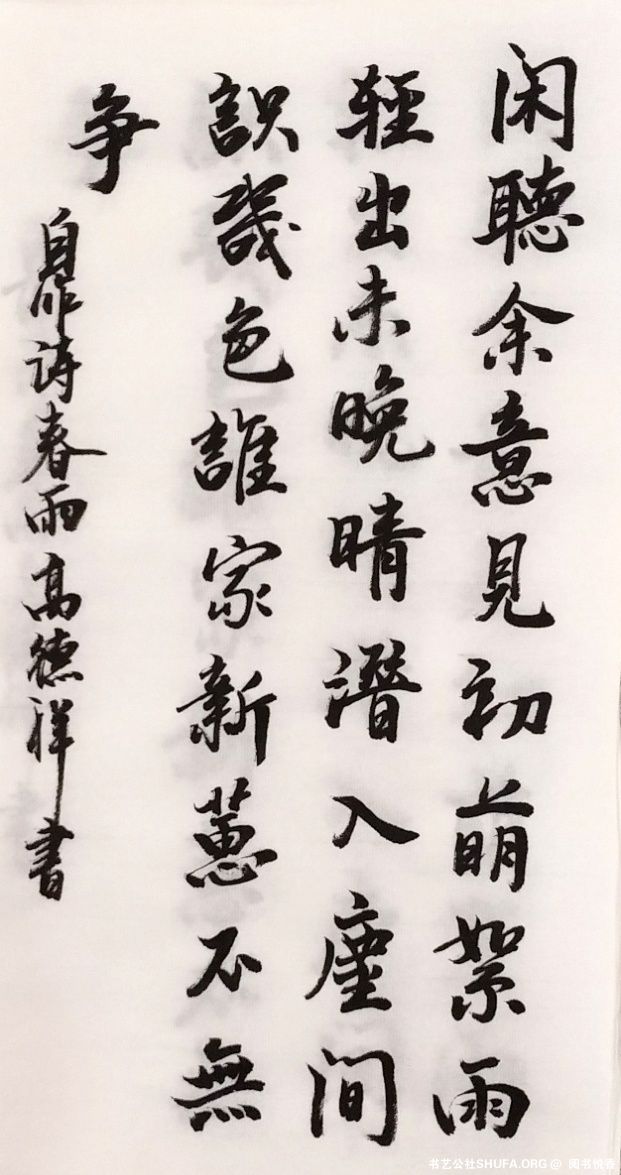 闲聽余意見初萌絮雨
輕出未晚晴潛入塵间
識幾色誰家新蕙不無
争
自作诗春雨高德祥書
书艺公社SHUFA.ORG @ 阅书悦香